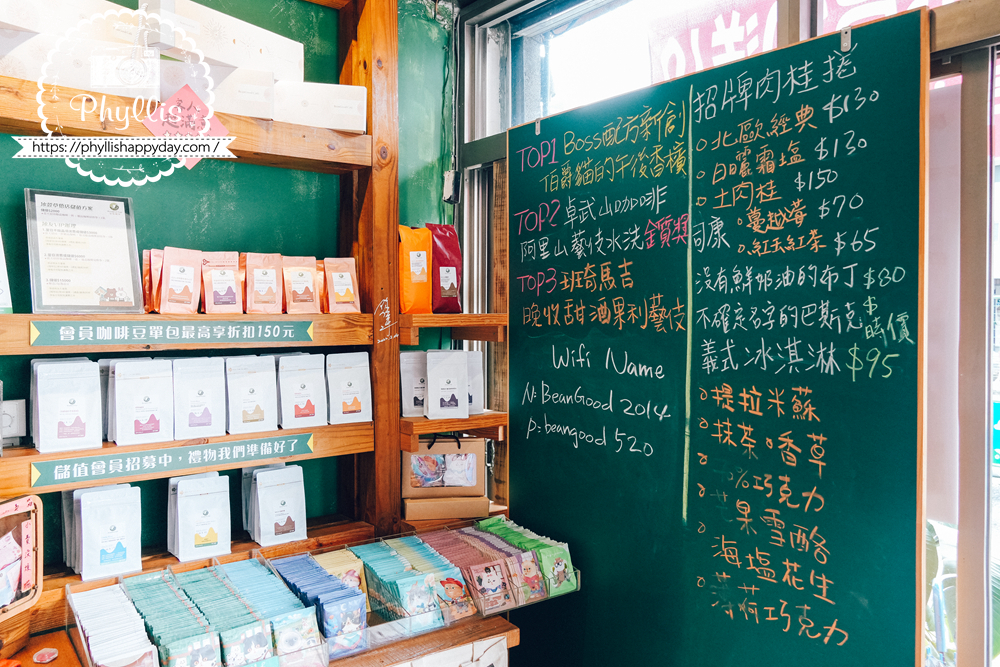 Phyllis
https://phyllishappyday.com/
會員咖啡豆單包最高享折扣150元
儲值會員招募中，禮物我們準備好了
TOP1 Boss配方新創
伯爵貓的午後香檳
TOP2 卓武山咖啡
阿里山藝伎水洗金質獎
TOP3 班奇馬吉
晚收甜酒果利藝伎
Wifi Name
N: BeanGood 2014
p: beangood 520
招牌肉桂捲
北歐經典 $130
日曬霜塩 $130
土肉桂 $150
司康 蔓越莓 $70
紅玉紅茶 $65
沒有鮮奶油的布丁 $80
不確定名字的巴斯克 $時價
義式冰淇淋 $95
提拉米蘇
抹茶 香草
%巧克力
果雪酪
海塩花生
巧克力